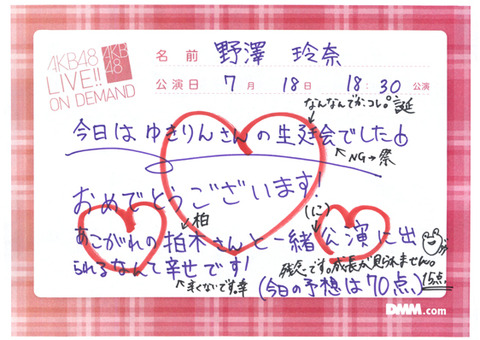 AKB48
LIVE!!
ON DEMAND
AKB
48
名 前 野澤 玲奈
公演日 7 月 18 日 18:30 公演
なんなんですかコレ。誕
今日は ゆきりんさん の 生廷会でした
↖NG→祭
おめでとうございます!
柏
(に)
あこがれの 柏木さんと一緒 公演 に出
られるなんて 幸せです!
残念です。成長が見られません。
まくないです。幸
(今日の予想は70点) 15点
DMM.com